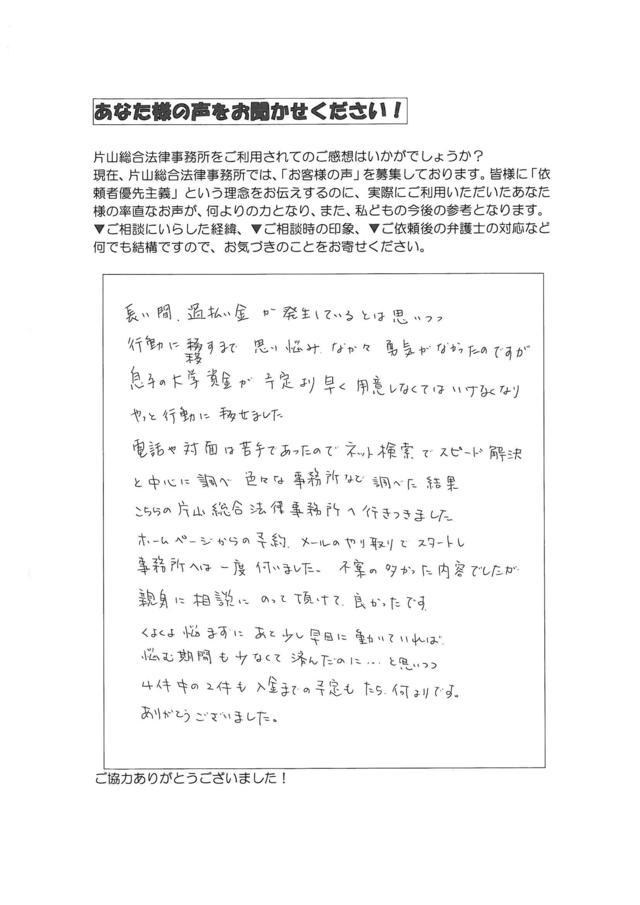 あなた様の声をお聞かせください！
片山総合法律事務所をご利用されてのご感想はいかがでしょうか？
現在、片山総合法律事務所では、「お客様の声」を募集しております。皆様に「依
頼者優先主義」という理念をお伝えするのに、実際にご利用いただいたあなた
様の率直なお声が、何よりの力となり、また、私どもの今後の参考となります。
▼ご相談にいらした経緯、▼ご相談時の印象、▼ご依頼後の弁護士の対応など
何でも結構ですので、お気づきのことをお寄せください。
長い間、過払い金が発生しているとは思いつつ
行動に移すまで 思い悩み、なか々 勇気がなかったのですが
移
息子の大学資金が予定より早く用意しなくてはいけなくなり
やっと行動に移せました
電話や対面は苦手であったのでネット検索でスピード解決
と中心に調べ 色々な事務所など調べた結果
こちらの片山総合法律事務所へ行きつきました
ホームページからの予約、メールのやり取りでスタートし
事務所へは一度 いました。 不案の多かった内容でしたが
親身に相談にのって頂けて、良かったです
くよくよ悩まずにあと少し早目に動いていれば、
悩む期間も少なくて済んだのに…と思いつつ
4件中の2件も入金までの予定も たら、何よりです。
ありがとうございました。
ご協力ありがとうございました！